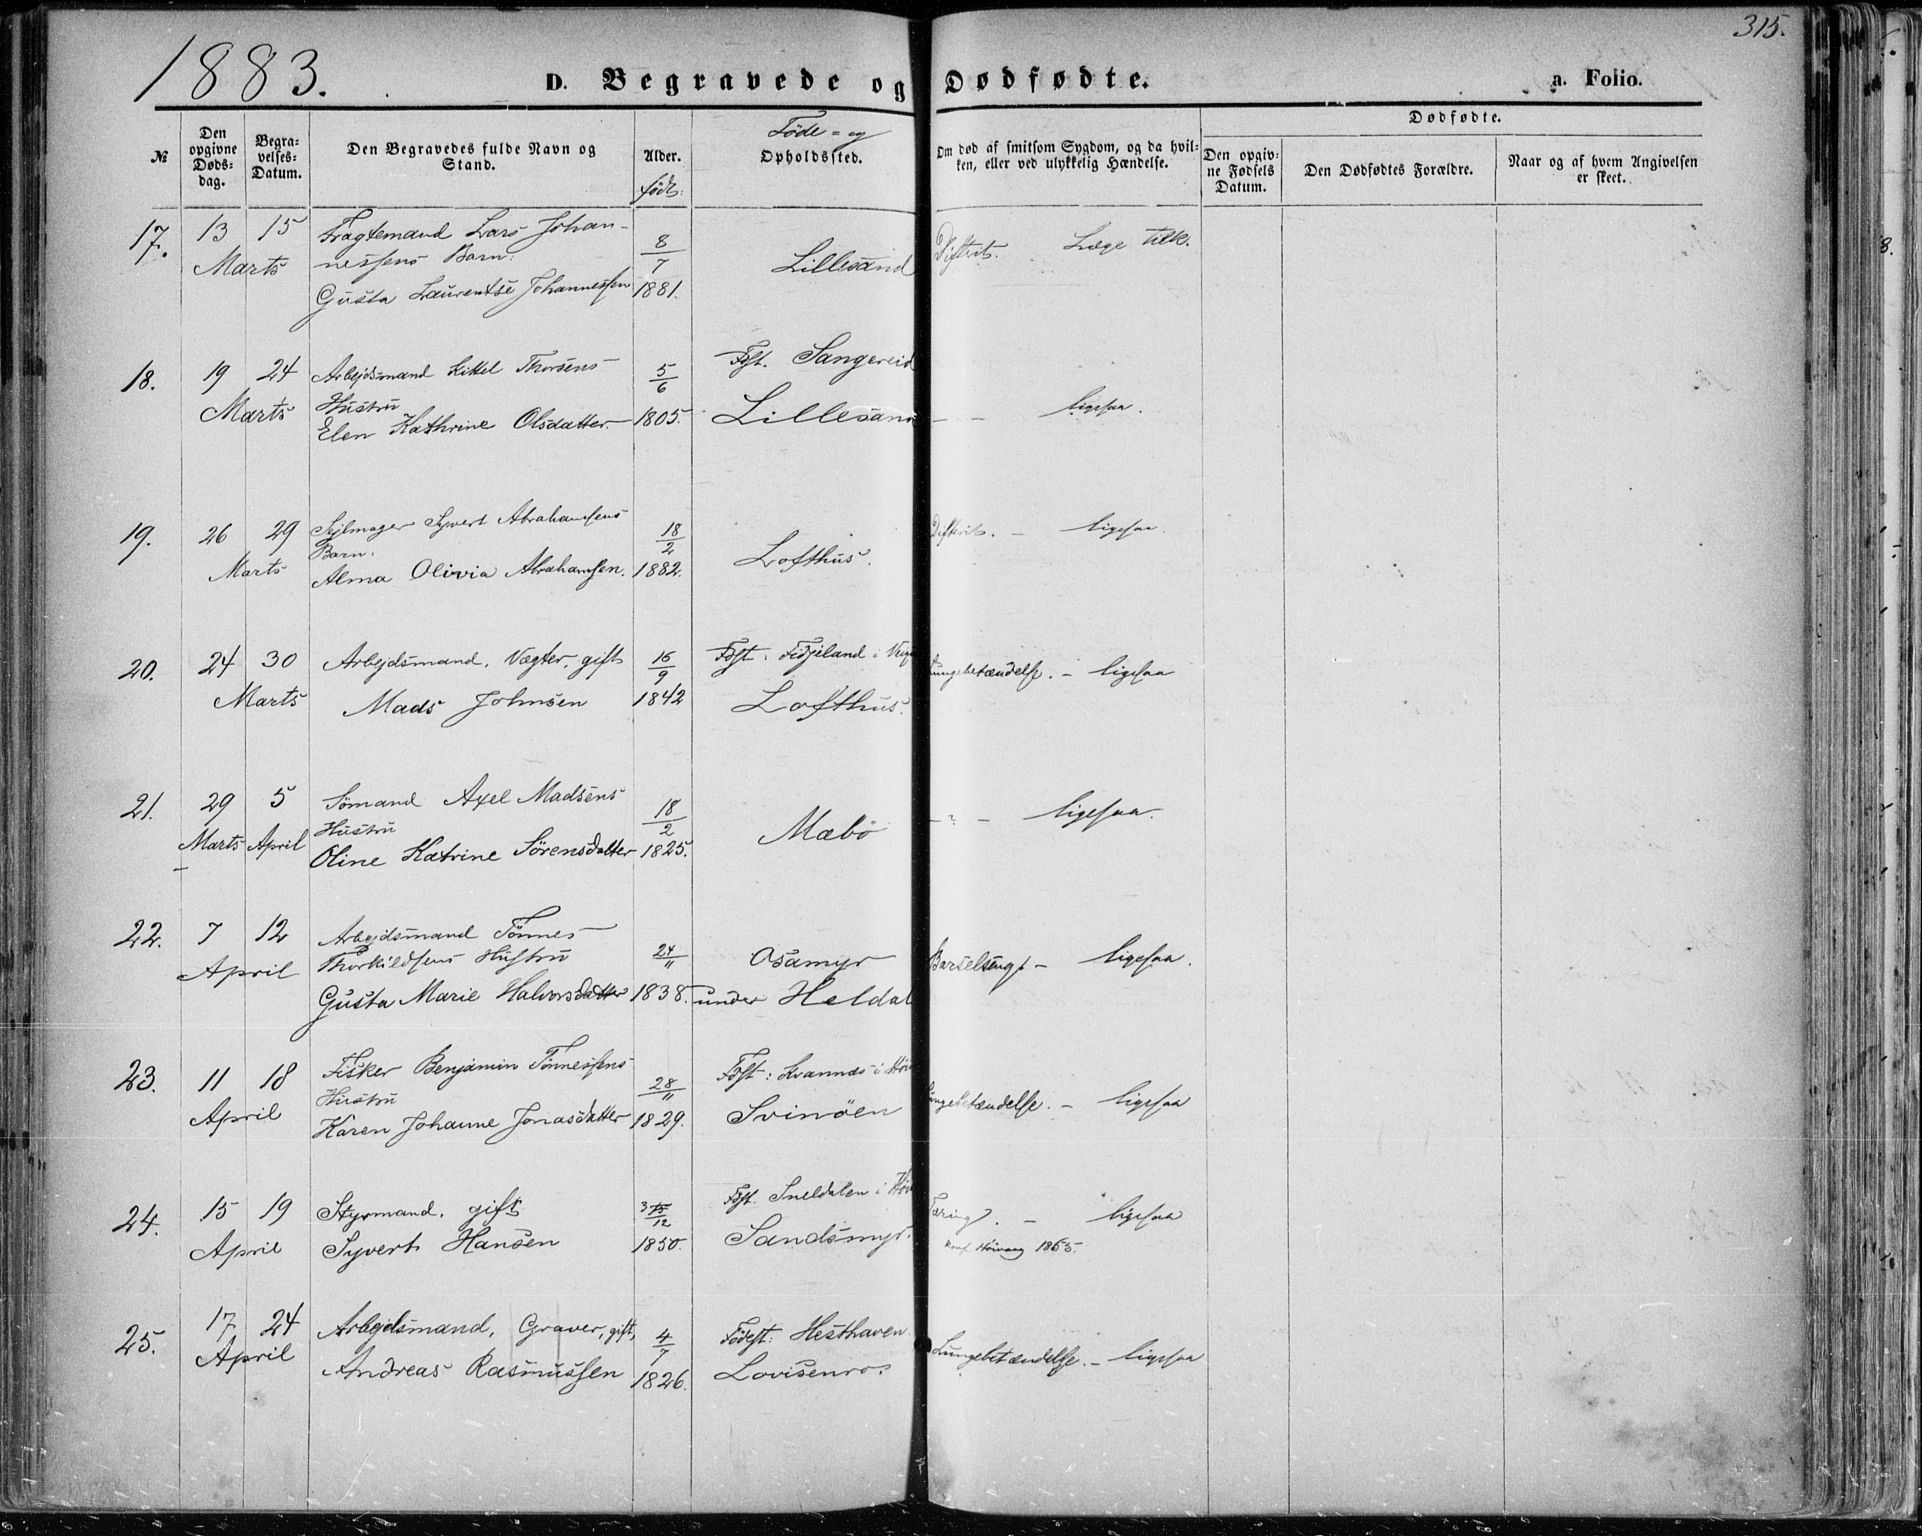 1883.
315.
D. Begravede og Dødfødte.
a. Folio.
№
Den opgivne Døds-dag.
Begra-velses-Datum.
Den Begravedes fulde Navn og Stand.
Alder.
født:
Føde- og
Opholdssted.
Om død af smitsom Sygdom, og da hvil-ken, eller ved ulykkelig Hændelse.
Dødfødte.
Den opgiv-ne Fødsels Datum.
Den Dødfødtes Forældre.
Naar og af hvem Angivelsen er skeet.
17. 13 15 Fragtemand Lars Johan-
Marts nessens Barn: 8/7 Lillesand Difterit. Læge tilk.
Gusta Laurentse Johannessen 1881.
18. 19 24 Arbejdsmand Kittel Thorsens 5/6 Fdst. Sangereid
Marts Hustru
Elen Kathrine Olsdatter 1805. Lillesand — — ligesaa.
19. 26 29 Sejlmager Syvert Abrahamsens 18/2 Difterit. — ligesaa.
Marts Barn:
Alma Olivia Abrahamsen. 1882. Lofthus.
20. 24 30 Arbejdsmand, Vægter, gift 16/9 Fdst: Fidjeland i Lungebetændelse. — ligesaa
Marts Mads Johnsen 1842 Lofthus.
21. 29 5 Sömand Axel Madsens 18/2
Marts April Hustru Mæbö — " — ligesaa.
Oline Katrine Sörensdatter 1825.
22. 7 12 Arbejdsmand Tönnes
April Thorkildsens Hustru 24/11 Osamyr Barselseng — ligesaa.
Gusta Marie Halvorsdatter 1838. under Heldal
23. 11 18 Fisker Benjamin Tönnessens 28/11 Fdst: Kvannes i
April Hustru Svinöen Lungebetændelse. — ligesaa
Karen Johanne Jonasdatter 1829.
24. 15 19 Styrmand, gift 12 Fdst. Sneldalen i Tæring. — ligesaa
April Syvert Hansen 1850. Sandsmyr. Konf. Höivaag 1865.
25. 17 24 Arbejdsmand, Graver, gift, 4/7 Födest: Hesthaven.
April Andreas Rasmussen 1826. Lovisenro. Lungebetændelse. — ligesaa